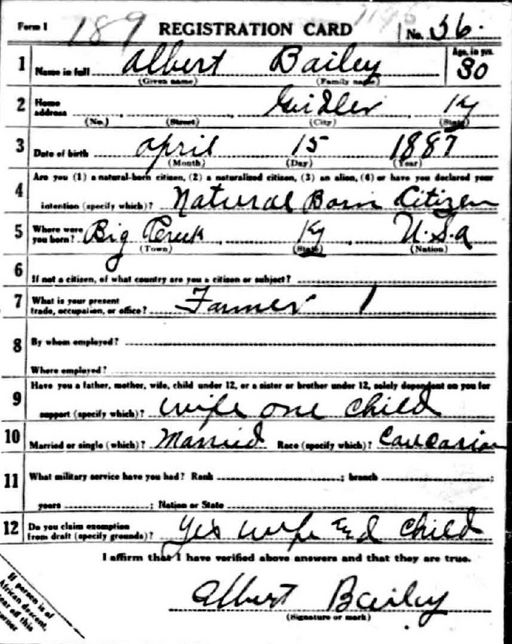 Form 1 189 REGISTRATION CARD No. 36.
1 Name in full Albert Bailey Age, in yrs. 30
(Given name) (Family name)
2 Home address Ky
(No.) (Street) (City) (State)
3 Date of birth April 15 1887
(Month) (Day) (Year)
4 Are you (1) a natural-born citizen, (2) a naturalized citizen, (3) an alien, (4) or have you declared your
intention (specify which)? Natural Born Citizen
5 Where were you born? Big Creek Ky U.S.A
(Town) (State) (Nation)
6 If not a citizen, of what country are you a citizen or subject?
7 What is your present trade, occupation, or office? Farmer 1
8 By whom employed?
Where employed?
9 Have you a father, mother, wife, child under 12, or a sister or brother under 12, solely dependent on you for
support (specify which)? wife one child
10 Married or single (which)? Married Race (specify which)? Caucasian
11 What military service have you had? Rank ; branch ;
years ; Nation or State
12 Do you claim exemption from draft (specify grounds)? Yes wife & child
I affirm that I have verified above answers and that they are true.
Albert Bailey
(Signature or mark)
If person is of
African descent,